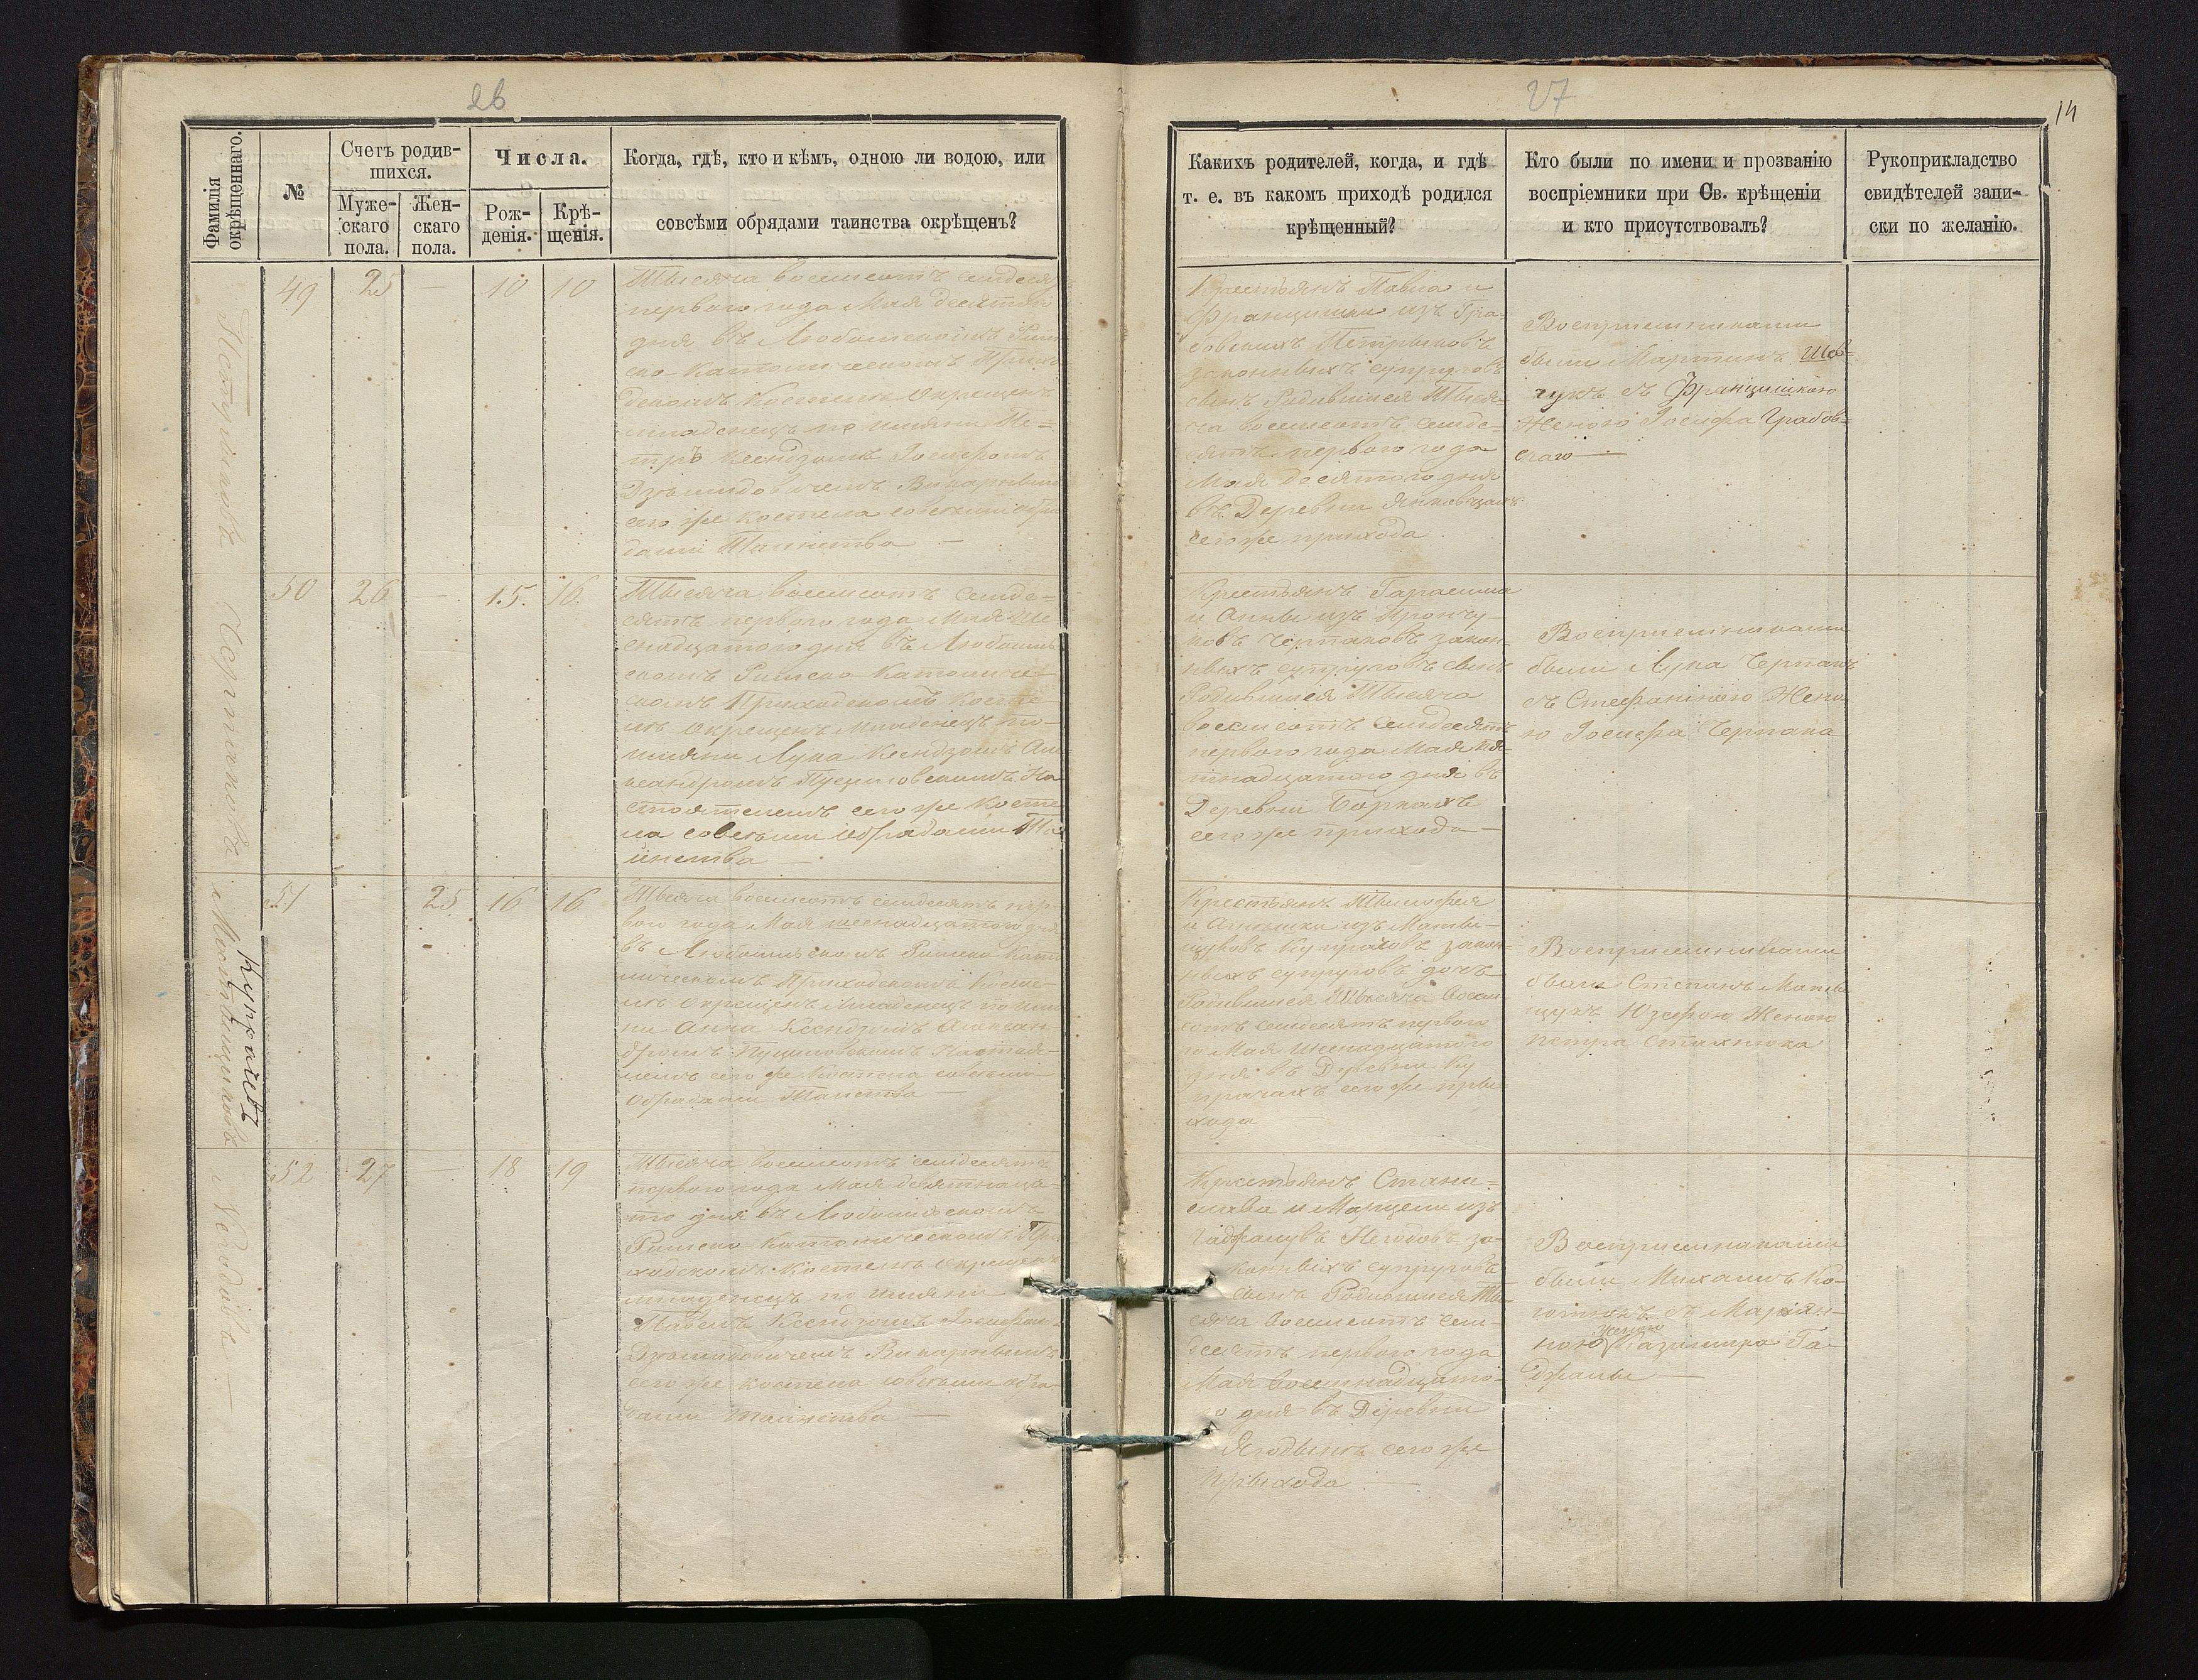 26
Фамилія окрѣщеннаго.
№
Счетъ родив-
шихся.
Муже-
скаго
пола.
Жен-
скаго
пола.
Числа.
Рож-
денія.
Крѣ-
щенія.
Когда, гдѣ, кто и кѣмъ, одною ли водою, или
совсѣми обрядами таинства окрѣщенъ?
49
25
—
10
10
Тысяча восемсотъ семдеся
первого года Мая десятого
дня въ Любомском
ско Католическомъ Прихо
дскомъ Костелѣ Окрещенъ
младенецъ по имяни Пе=
тръ Ксендзомъ Іосифомъ
Викарнымъ
сего же костела совсѣми обря
дами Таинства —
Чернаковъ
50
26
—
15.
16.
Тысяча восемсотъ семде=
сятъ первого года Мая Ше
снадцатого дня въ Любомль
скомъ Римско Католиче-
скомъ Приходскомъ Косте
лѣ окрещенъ Младенецъ по-
имяни Лука Ксендзомъ Але
ксандромъ На
стоятелемъ сего же Косте
ла совсѣми Обрадами Та
инства —
Купрачевъ
51
25
16
16
Тысяча восемсотъ семдесятъ пер
вого года Мая шеснадцатого дня
въ Любомльскомъ Римско Като
лическомъ Приходскомъ Косте-
лѣ окрещенъ Младенецъ по имя
ни Анна Ксендзомъ Алексан
дромъ Настоя-
лемъ сего же Костела совсѣми
Обрадами Таинства
52
27
—
18
19
Тысяча восемсотъ семдесятъ
первого года Мая девятнаца-
то дня въ Любомльскомъ
Римско Католическомъ При
ходскомъ Костелѣ окрещенъ
младенецъ по имяни
Павелъ Ксендзомъ Іосифомъ
Викарнымъ
сего же костела совсѣми обра
дами таинства —
27
14
Какихъ родителей, когда, и гдѣ
т. е. въ какомъ приходѣ родился
крѣщенный?
Кто были по имени и прозванію
воспріемники при Св. крѣщеніи
и кто присутствовалъ?
Рукоприкладство
свидѣтелей запи-
ски по желанію.
Крестьянъ Павла и
Францишки изъ Гра-
бовскихъ Петрыковъ
законныхъ супруговъ
сынъ Родившиеся Тыся-
ча восемсотъ семде=
сятъ первого года
Мая десятого дня
въ Деревни Янковцахъ
сего же прихода
Восприемниками
были Мартинъ Шев=
чукъ съ Францишкою
Женою Іосифа Грабов=
скаго —
Крестьянъ Гарасима
и Анны изъ Прончу
ковъ Чернаковъ закон-
ныхъ супруговъ сынъ
Родившиеся Тысяча
восемсотъ семдесятъ
первого года Мая пя-
тнадцатого дня въ
Деревни Боркахъ
сего же прихода —
Восприемниками
были Лука Чернакъ
съ Стефаніею Жено
ю Іосифа Чернака
Крестьянъ Тимофея
и Агнышки изъ
Купрачовъ закон-
ныхъ супруговъ дочъ
Родившиеся Тысяча Восем
сотъ семдесятъ первого
го Мая Шеснадцатого
дня въ Деревни Ку
прачахъ сего же при
хода
Восприемниками
были Степанъ
Юзефою Женою
Петра Стахнюка
Крестьянъ Стани=
слава и Марцели изъ
за-
конныхъ супруговъ
сынъ Родившиеся Ты
сяча восемсотъ сем-
десятъ первого года
Мая восемнадцато-
го дня въ Деревни
Ягодынѣ сего же
Прихода —
Восприемниками
были Михаилъ Ко-
съ Маріян-
ною женою Казимира Га-
—